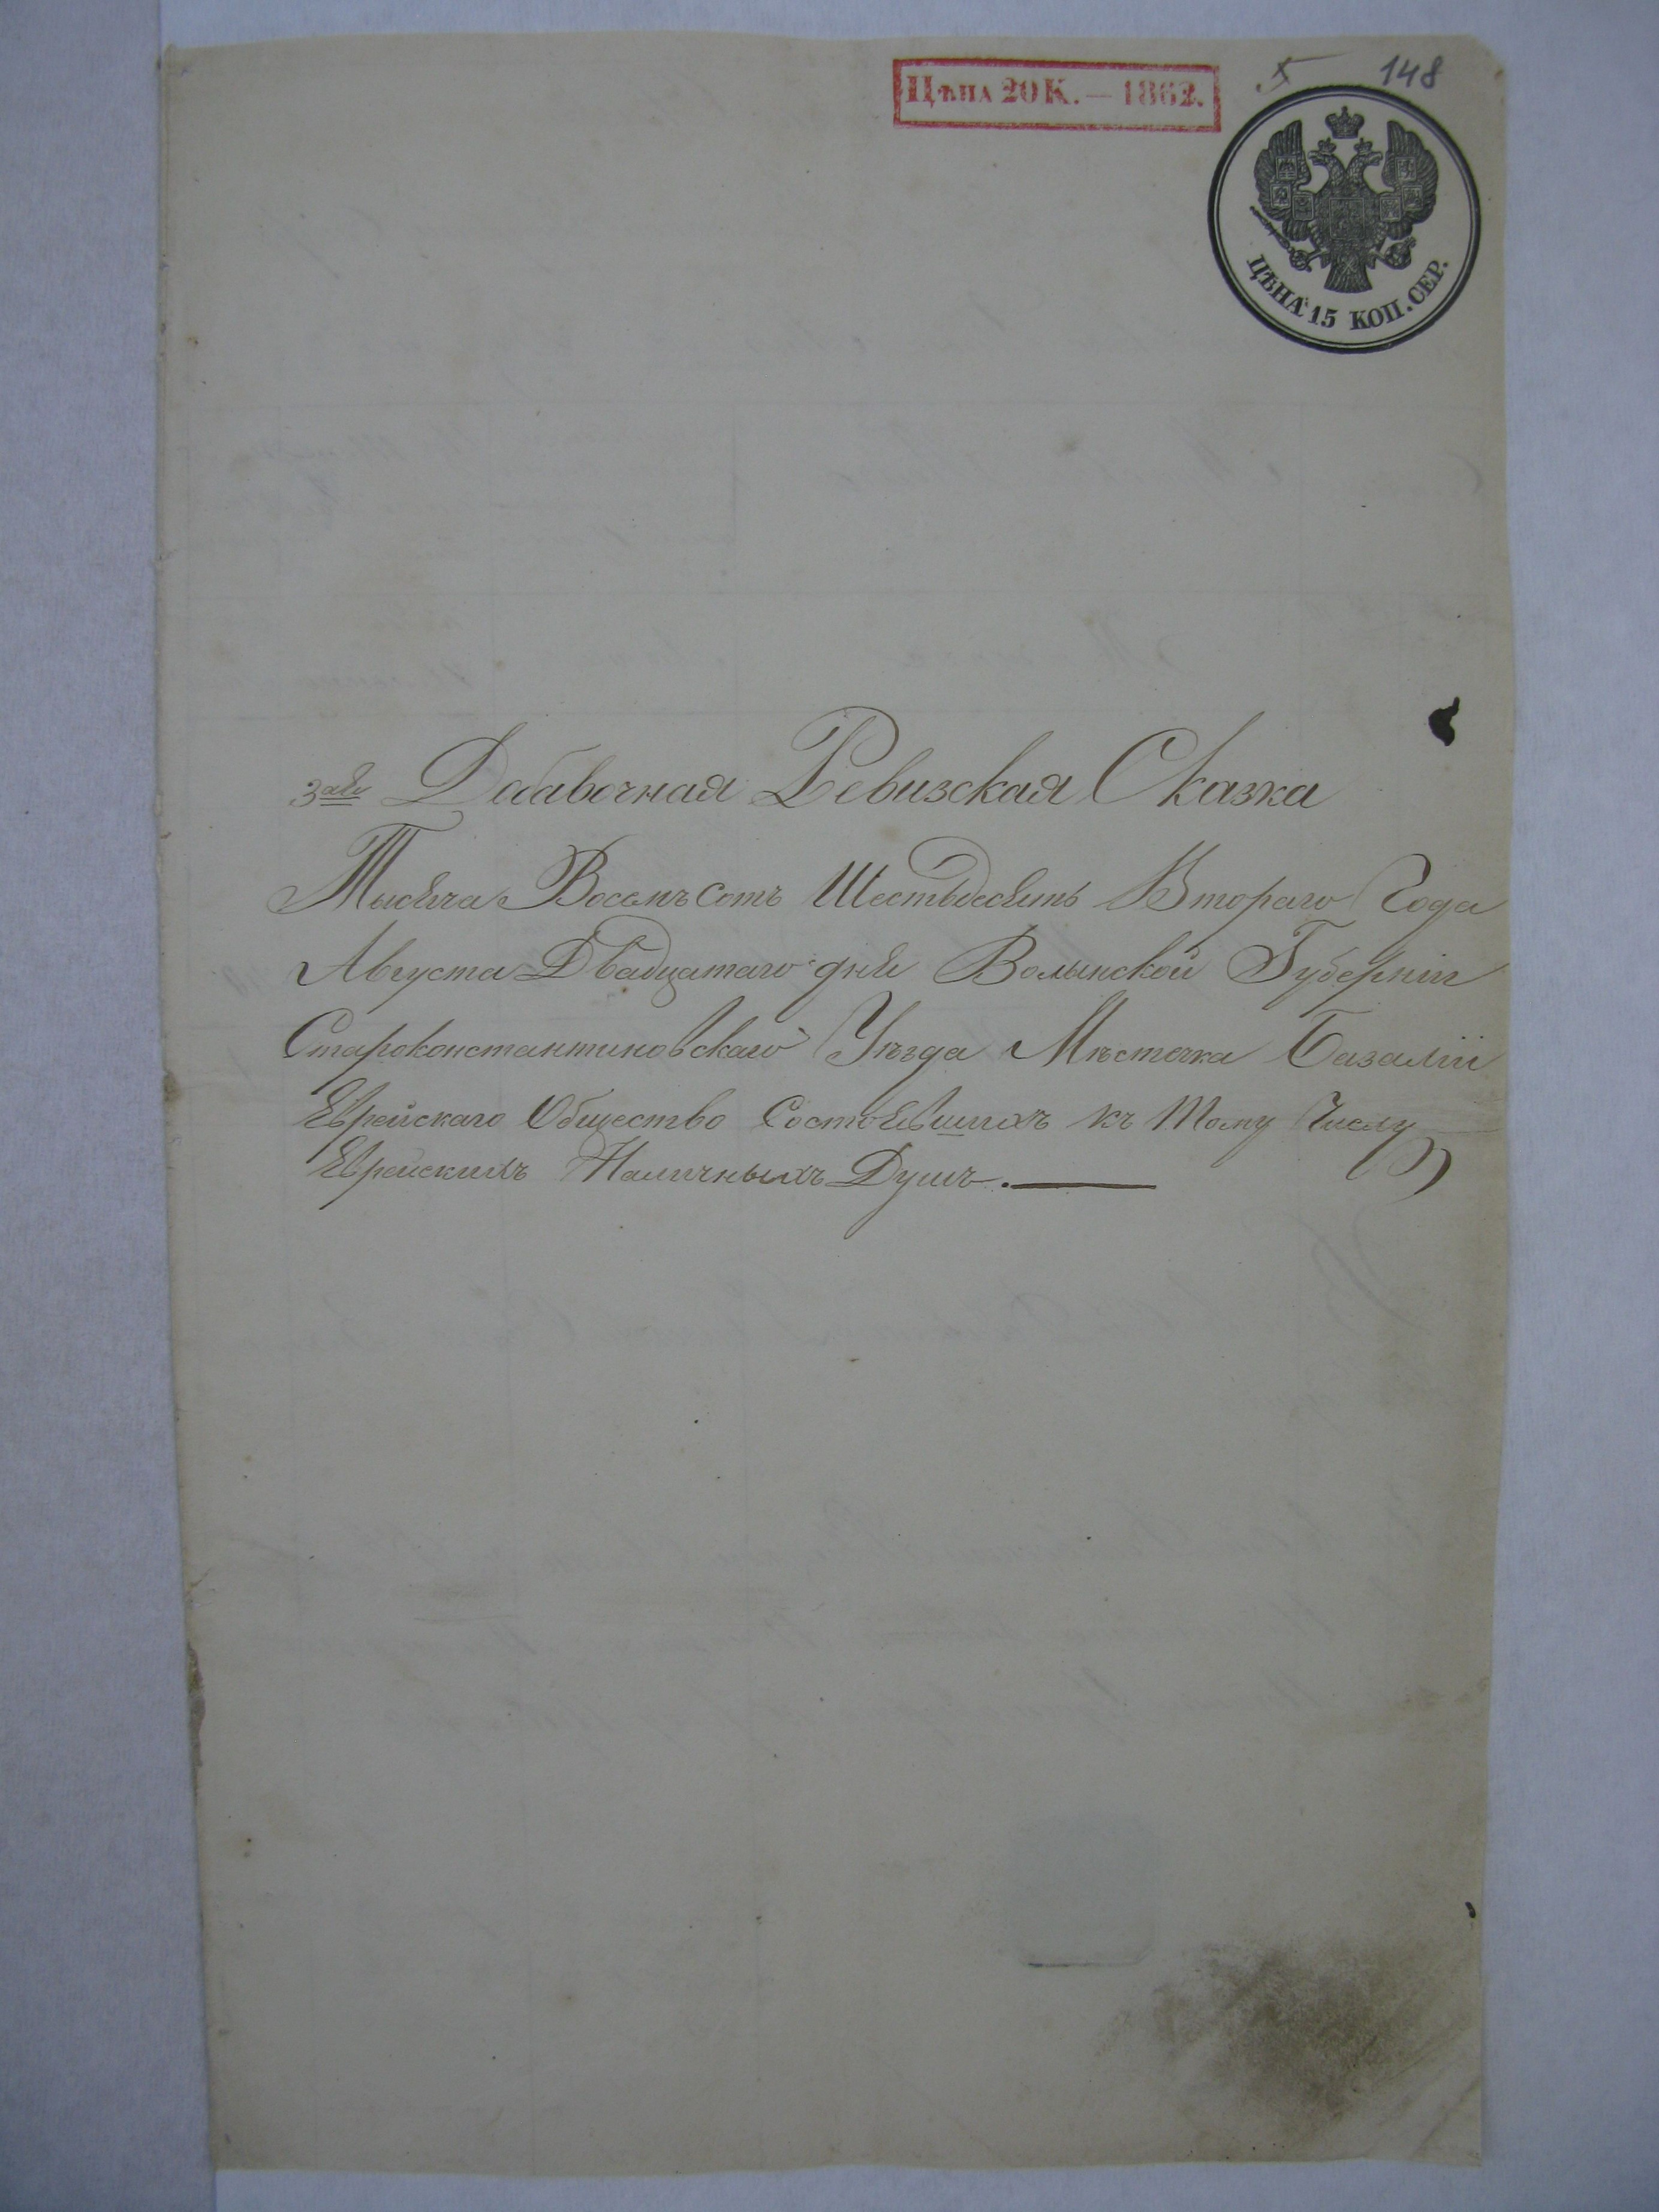 148
Цѣна 20 К. — 1862.
ЦѢНА 15 КОП. СЕР.
3ая Добавочная Ревизская Сказка
Тысяча Восемъ сотъ Шестьдесятъ Втораго Года
Августа Двадцатаго дня Волынской Губерніи
Староконстантиновскаго Уѣзда Мѣстечка Базаліи
Еврейскаго Общество Состоявшихъ къ Тому Числу
Еврейскихъ Наличныхъ Душъ.